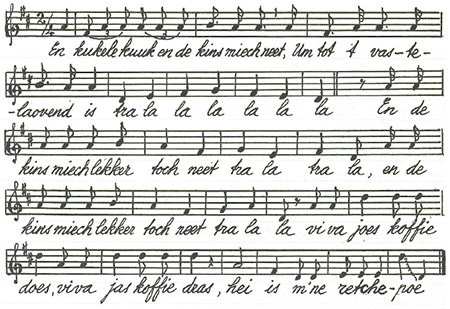 2/4
3 3
En kukelekuuk en de kins miech neet, Um tot 't vas-te-
-laovend is tra la la la la la la la En de
kins miech lekker toch neet tra la tra la, en de
kins miech lekker toch neet tra la la vi va joes koffie
does, vi va jas koffie deas, hei is m'ne retche-poe